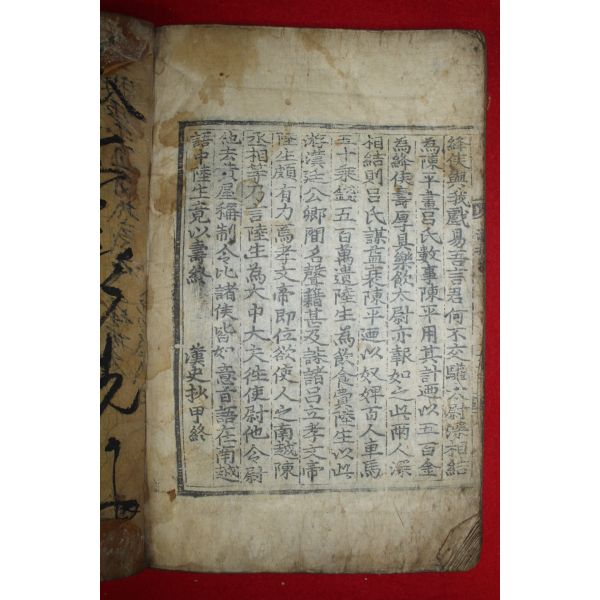 絳侯與我戲易吾言君何不交驩太尉深相結
為陳平畫呂氏數事陳平用其計廼以五百金
為絳侯壽厚具樂飮太尉亦報如之此兩人深
相結則呂氏謀益衰陳平廼以奴婢百人車馬
五十乘錢五百萬遺陸生為飮食費陸生以此
游漢廷公卿間名聲籍甚及誅諸呂立孝文帝
陸生頗有力焉孝文帝即位欲使人之南越陳
丞相等乃言陸生為大中大夫徃使尉他令尉
他去黃屋稱制令比諸侯皆如意旨語在南越
語中陸生竟以壽終 漢史抄甲終